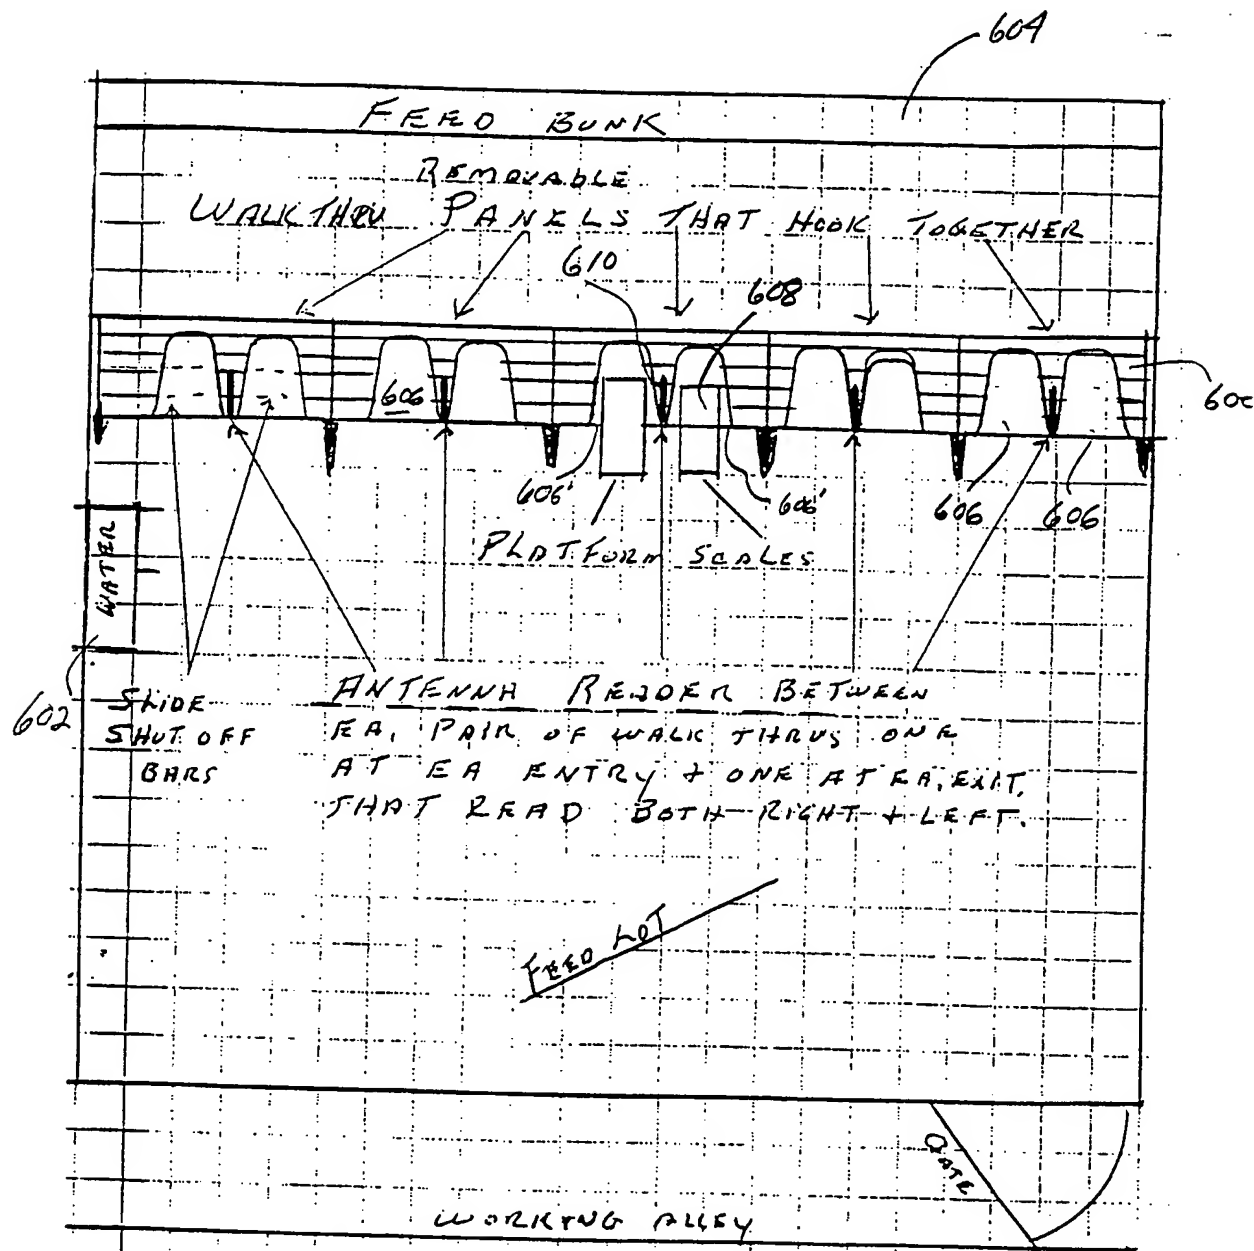 604
FEED BUNK
REMOVABLE
WALK THRU PANELS THAT HOOK TOGETHER
610
608
606
600
606'
606'
606
606
PLATFORM SCALES
WATER
602
SLIDE
SHUT OFF
BARS
ANTENNA READER BETWEEN
EA. PAIR OF WALK THRUS ONE
AT EA ENTRY + ONE AT EA. EXIT.
THAT READ BOTH RIGHT + LEFT.
FEED LOT
GATE
WORKING ALLEY